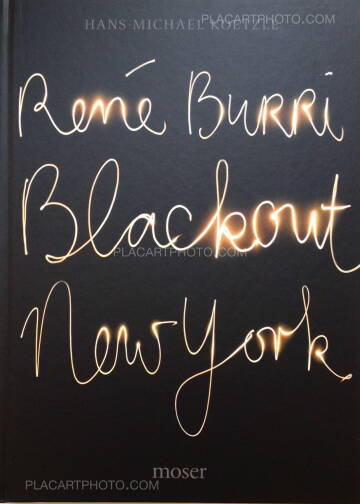 PLACARTPHOTO.COM
HANS-MICHAEL KOETZLE
René Burri
Blackout
PLACARTPHOTO.COM
New York
moser
PLACARTPHOTO.COM